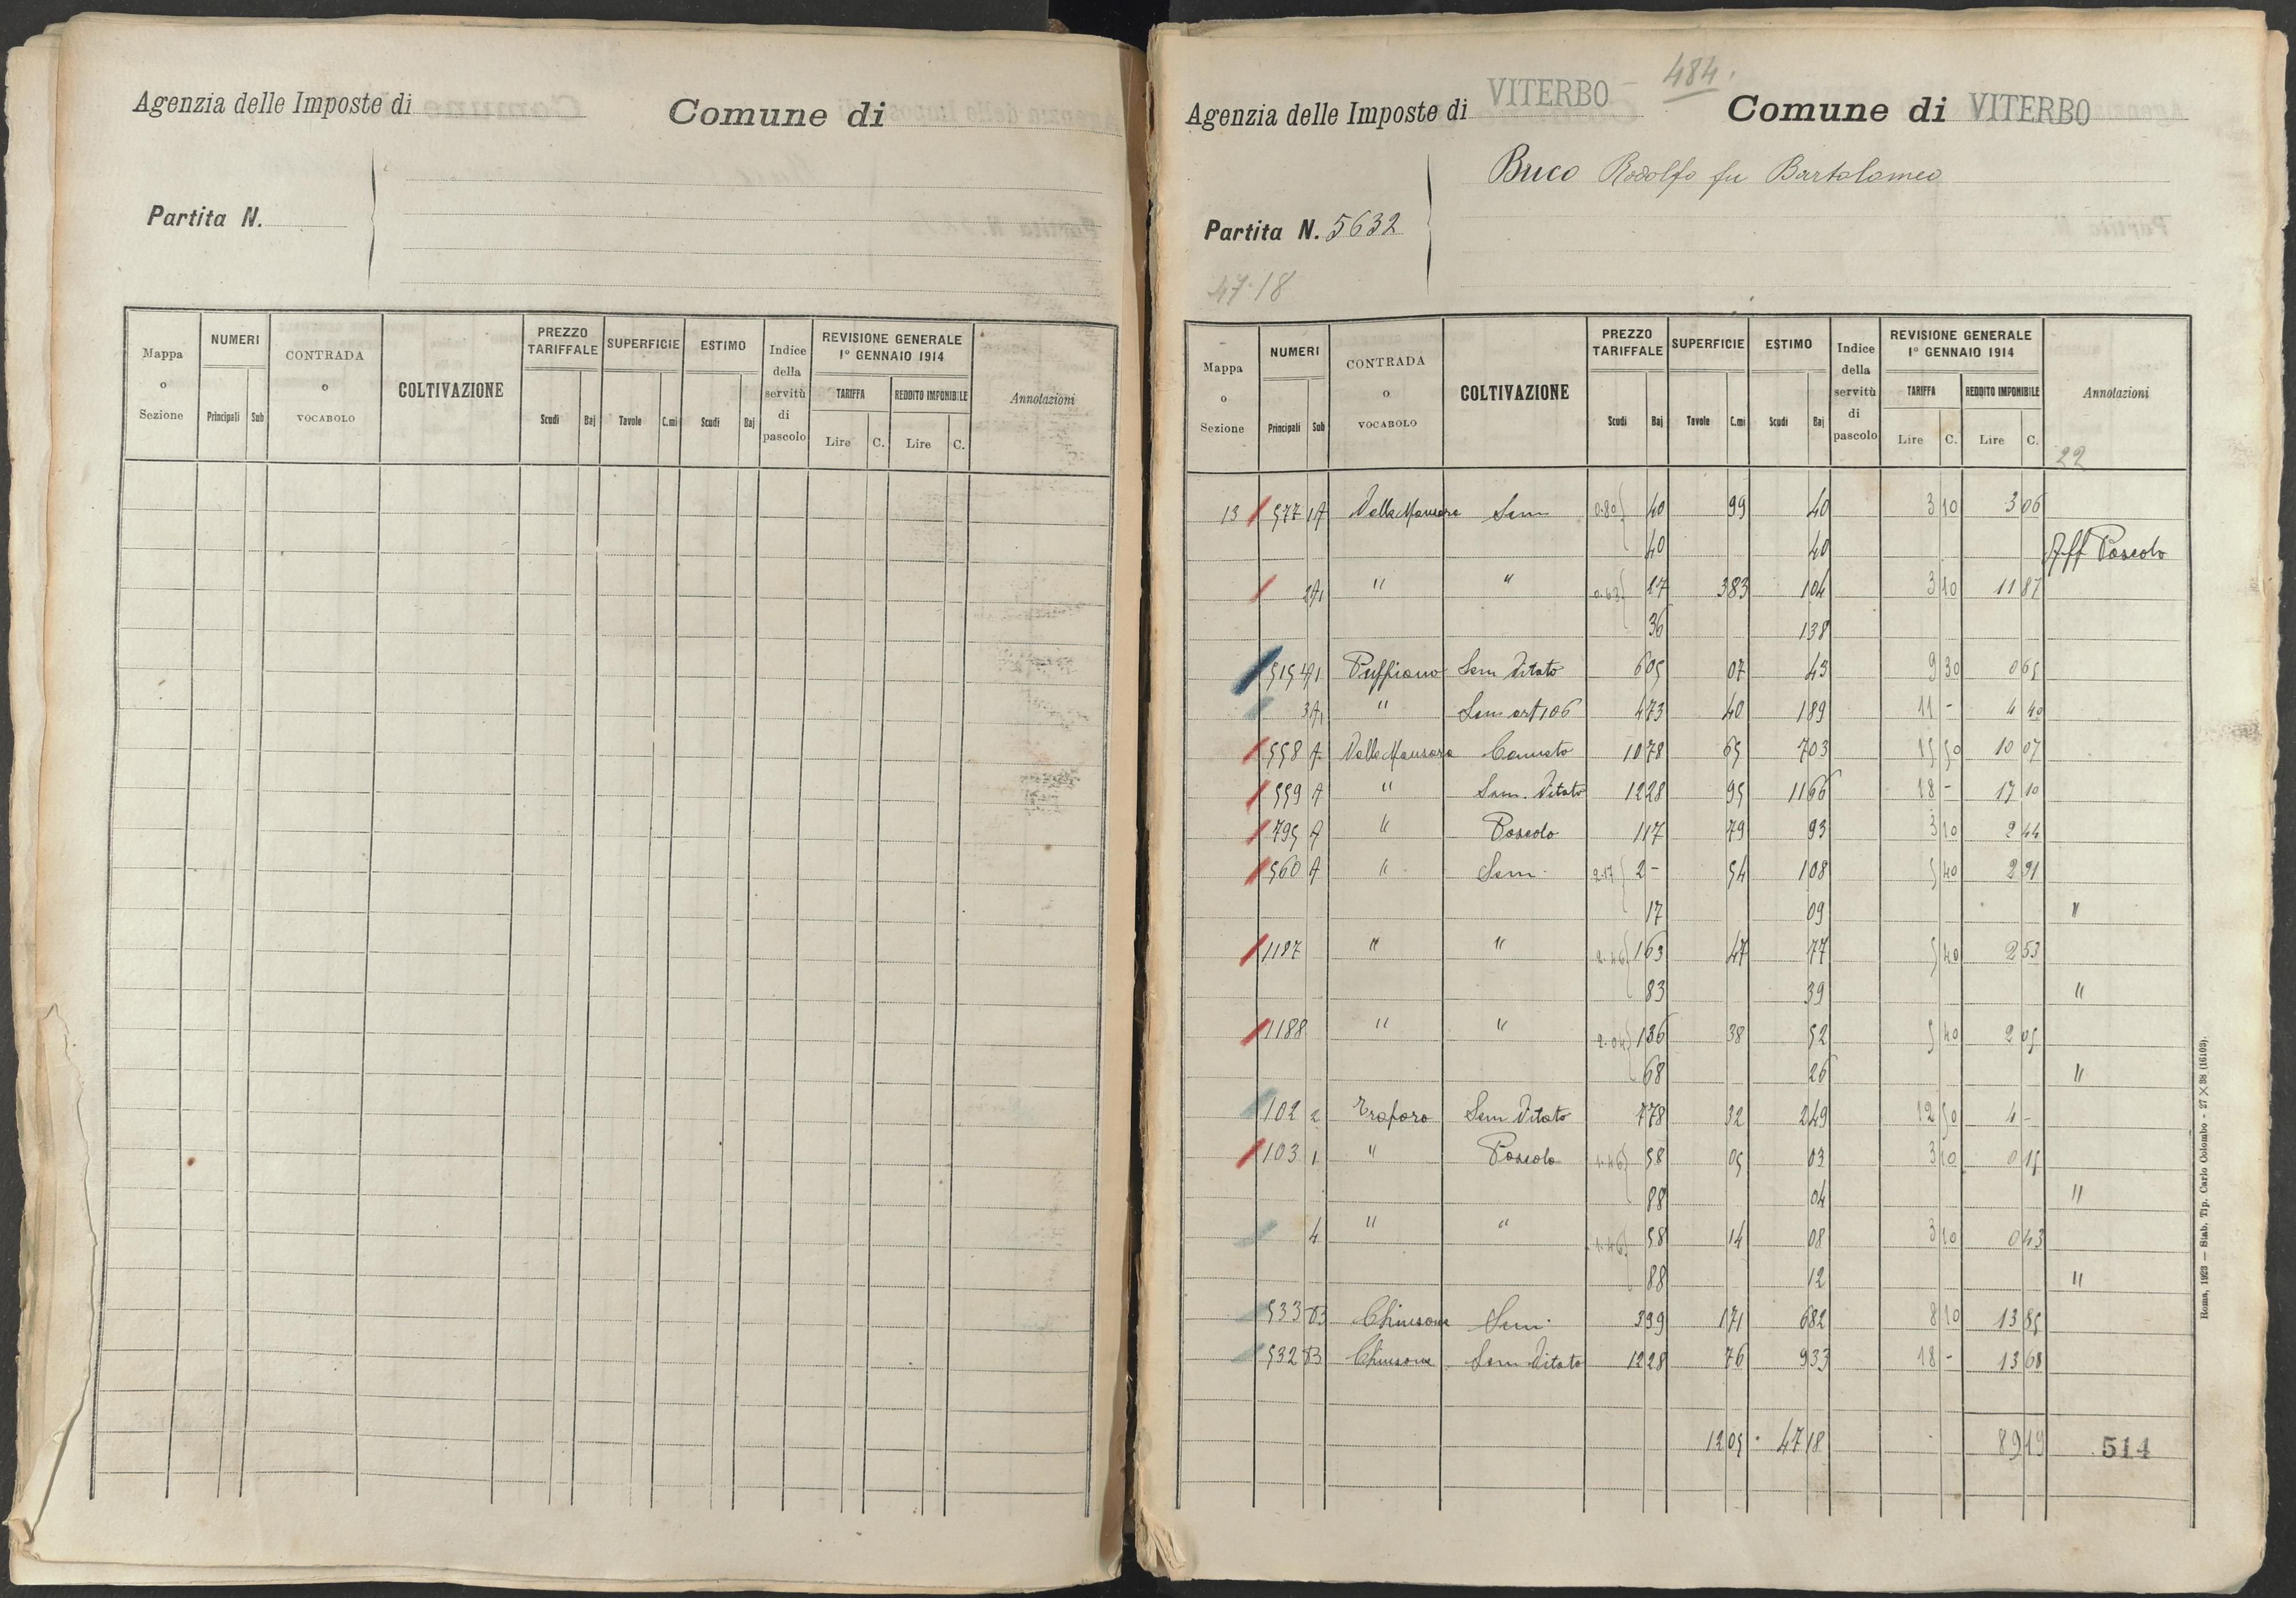 Agenzia delle Imposte di
Comune di
Partita N.
Mappa o Sezione | NUMERI Principali Sub | CONTRADA o VOCABOLO | COLTIVAZIONE | PREZZO TARIFFALE Scudi Baj | SUPERFICIE Tavole C.mi | ESTIMO Scudi Baj | Indice della servitù di pascolo | REVISIONE GENERALE 1° GENNAIO 1914 TARIFFA Lire C. REDDITO IMPONIBILE Lire C. | Annotazioni
484.
Agenzia delle Imposte di VITERBO
Comune di VITERBO
Buco Rodolfo fu Bartolomeo
Partita N. 5632
47.18
Mappa o Sezione | NUMERI Principali Sub | CONTRADA o VOCABOLO | COLTIVAZIONE | PREZZO TARIFFALE Scudi Baj | SUPERFICIE Tavole C.mi | ESTIMO Scudi Baj | Indice della servitù di pascolo | REVISIONE GENERALE 1° GENNAIO 1914 TARIFFA Lire C. REDDITO IMPONIBILE Lire C. | Annotazioni
22
13 577 1A Sem 0.80 40 99 40 3 10 3 06
40 40 Aff Pascolo
2A1 " " 0.63 27 383 104 3 10 11 87
36 138
515 4A1 Sem Vitato 605 07 43 9 30 0 65
3A1 " Sem art 106 473 40 189 11 - 4 40
558 A Canneto 10 78 65 7 03 15 50 10 07
559 A " Sem. Vitato 12 28 95 11 66 18 - 17 10
795 A " Pascolo 1 17 79 93 3 10 2 44
560 A " Sem. 2.17 2 - 54 1 08 5 40 2 91
17 09 "
1187 " " 2.46 1 63 47 77 5 40 2 53
83 39 "
1188 " " 2.04 1 36 38 52 5 40 2 05
68 26 "
102 2 Sem Vitato 7 78 32 2 49 12 50 4 -
103 1 " Pascolo 1.46 58 05 03 3 10 0 15
88 04 "
4 " " 1.46 58 14 08 3 10 0 43
88 12 "
533 B Sem. 3 99 1 71 6 82 8 10 13 85
532 B Sem Vitato 12 28 76 9 33 18 - 13 68
12 05 47 18 89 19 514
Roma, 1923 — Stab. Tip. Carlo Colombo - 27 × 38 (16103).